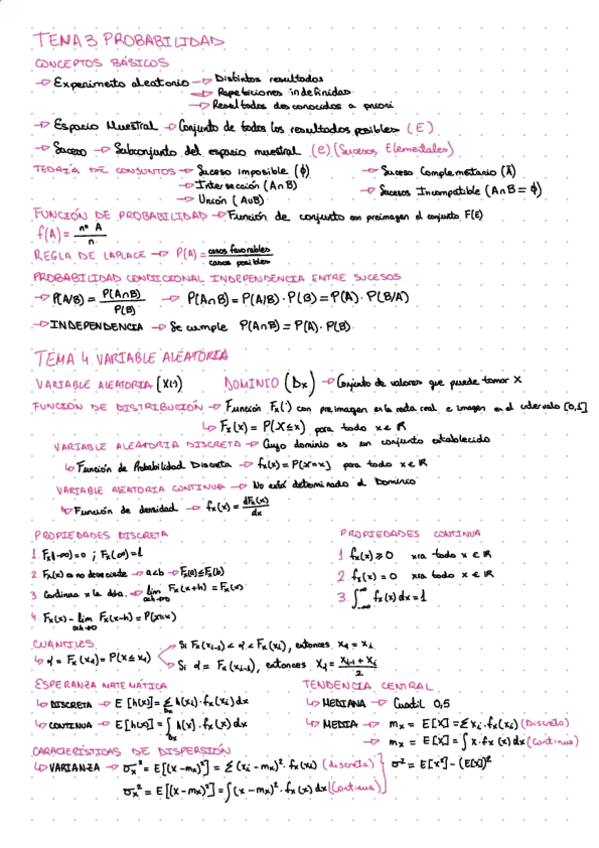 TEMA 3 PROBABILIDAD
CONCEPTOS BÁSICOS
→ Experimento aleatorio → Distintos resultados
→ Repeticiones indefinidas
→ Resultados desconocidos a priori
→ Espacio Muestral → Conjunto de todos los resultados posibles (E)
→ Suceso → Subconjunto del espacio muestral (e) (Sucesos Elementales)
TEORÍA DE CONJUNTOS → Suceso imposible (ϕ) → Suceso Complementario (Ā)
→ Intersección (A∩B) → Sucesos Incompatible (A∩B = ϕ)
→ Unión (A∪B)
FUNCIÓN DE PROBABILIDAD → Función de conjunto con preimagen el conjunto F(E)
f(A) = nº A / n
REGLA DE LAPLACE → P(A) = casos favorables / casos posibles
PROBABILIDAD CONDICIONAL INDEPENDENCIA ENTRE SUCESOS
→ P(A/B) = P(A∩B) / P(B) → P(A∩B) = P(A/B) · P(B) = P(A) · P(B/A)
→ INDEPENDENCIA → Se cumple P(A∩B) = P(A) · P(B)
TEMA 4 VARIABLE ALEATORIA
VARIABLE ALEATORIA (X(·)) DOMINIO (Dx) → Conjunto de valores que puede tomar X
FUNCIÓN DE DISTRIBUCIÓN → Función Fx(·) con preimagen en la recta real e imagen en el intervalo [0,1]
↳ Fx(x) = P(X≤x) para todo x∈ℝ
VARIABLE ALEATORIA DISCRETA → Cuyo dominio es un conjunto establecido
↳ Función de Probabilidad Discreta → fx(x) = P[X=x] para todo x∈ℝ
VARIABLE ALEATORIA CONTINUA → No está determinado el Dominio
↳ Función de densidad → fx(x) = dFx(x) / dx
PROPIEDADES DISCRETA PROPIEDADES CONTINUA
1. Fx(-∞)=0 ; Fx(∞)=1 1. fx(x) ≥ 0 xra todo x∈ℝ
2. Fx(x) es no decreciente → a<b → Fx(a)≤Fx(b) 2. fx(x) = 0 xra todo x∈ℝ
3. Continua x la dcha. → lim Fx(x+h) = Fx(x) 3. ∫ fx(x) dx = 1
4. Fx(x) - lim Fx(x-h) = P(X=x)
CUANTILES → Si Fx(xi-1) < α < Fx(xi), entonces xα = xi
↳ α = Fx(xα) = P(X≤xα) → Si α = Fx(xi-1), entonces Xα = xi-1 + xi / 2
ESPERANZA MATEMÁTICA TENDENCIA CENTRAL
↳ DISCRETA → E [h(x)] = Σ h(xi) · fx(xi) dx ↳ MEDIANA → Cuantil 0,5
↳ CONTINUA → E [h(x)] = ∫ h(x) · fx(x) dx ↳ MEDIA → mx = E[X] = Σ xi · fx(xi) (Discreta)
→ mx = E[X] = ∫ x · fx (x) dx (Continua)
CARACTERÍSTICAS DE DISPERSIÓN
↳ VARIANZA → σx² = E[(X-mx)²] = Σ (xi - mx)² · fx (xi) (discreta) } σ² = E[x²] - (E[x])²
σx² = E[(X-mx)²] = ∫(x - mx)² · fx (x) dx (Continua)